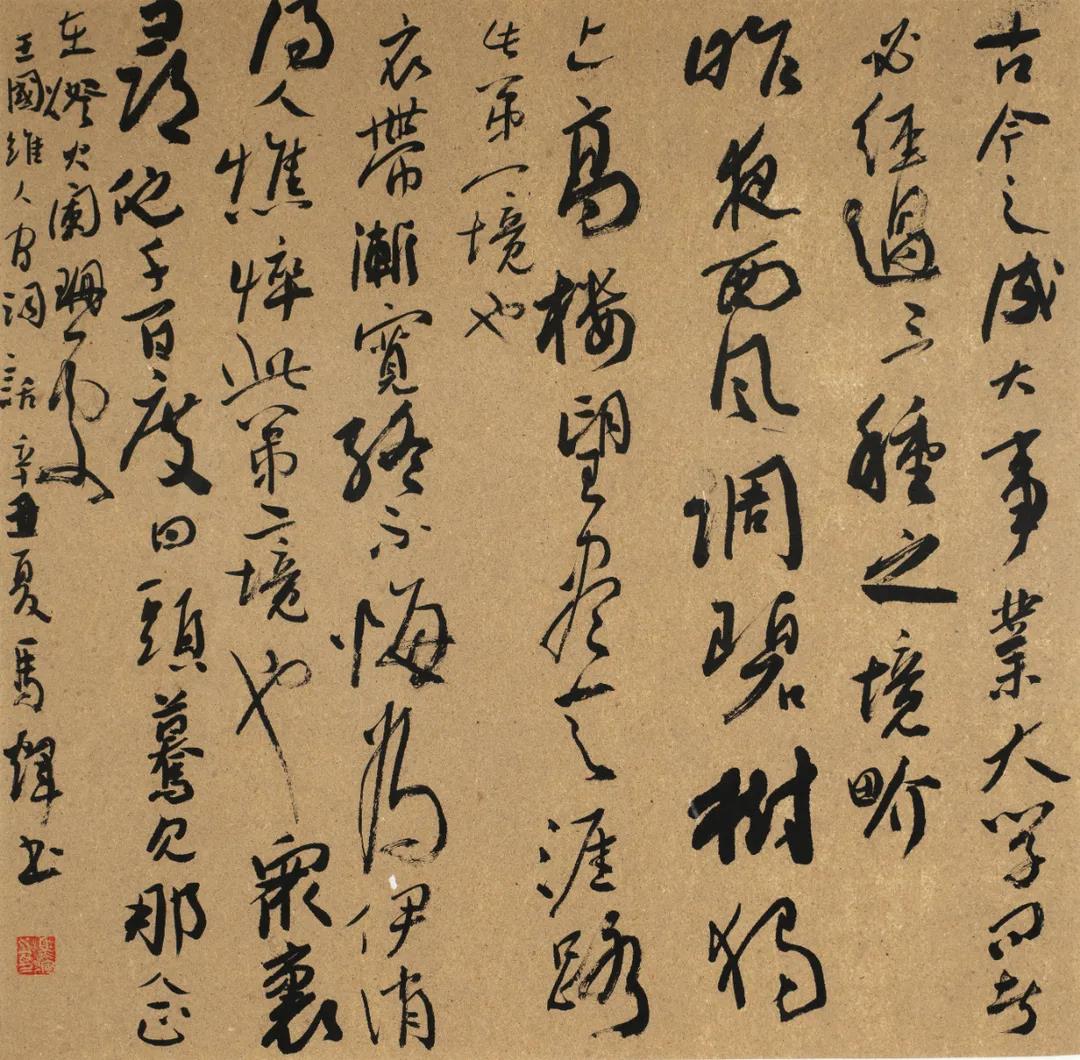 古今之成大事業大學問者
必經過三種之境畍
昨夜西風凋碧樹獨
上高樓望盡天涯路
此第一境也
衣帶漸寬終不悔為伊消
得人憔悴此第二境也眾裏
尋他千百度回頭驀見那人正
在燈火闌珊處
王國維人間詞話辛丑夏馬輝書